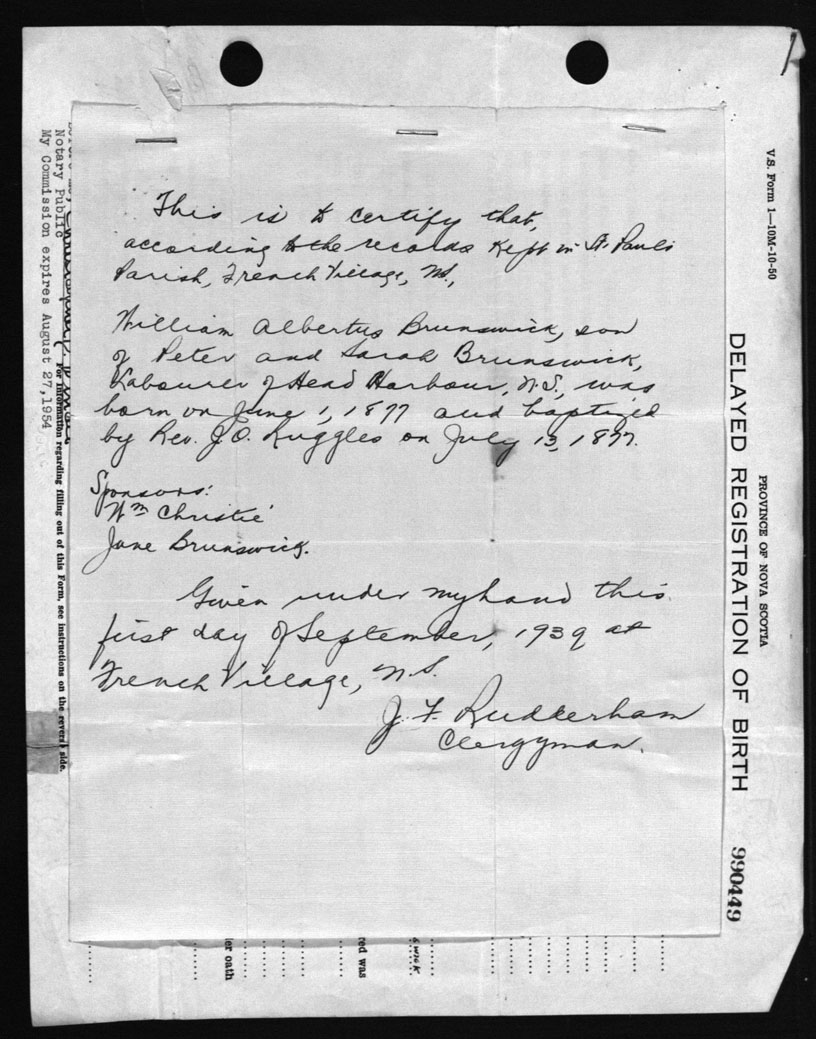 This is to certify that,
according to the records kept in St. Paul's
Parish, French Village, N.S.,
William Albertus Brunswick, son
of Peter and Sarah Brunswick,
Labourer of Head Harbour, N.S., was
born on June 1, 1877 and baptized
by Rev. J.O. Ruggles on July 13, 1877.
Sponsors:
Wm Christie
Jane Brunswick.
Given under my hand this
first day of September, 1939 at
French Village, N.S.
J. F. Rudderham
Clergyman.
V.S. Form 1—10M-10-50
PROVINCE OF NOVA SCOTIA
DELAYED REGISTRATION OF BIRTH
990449
Notary Public
My Commission expires August 27, 1954
For information regarding filling out of this Form, see instructions on the reverse side.
der oath
red was
swick